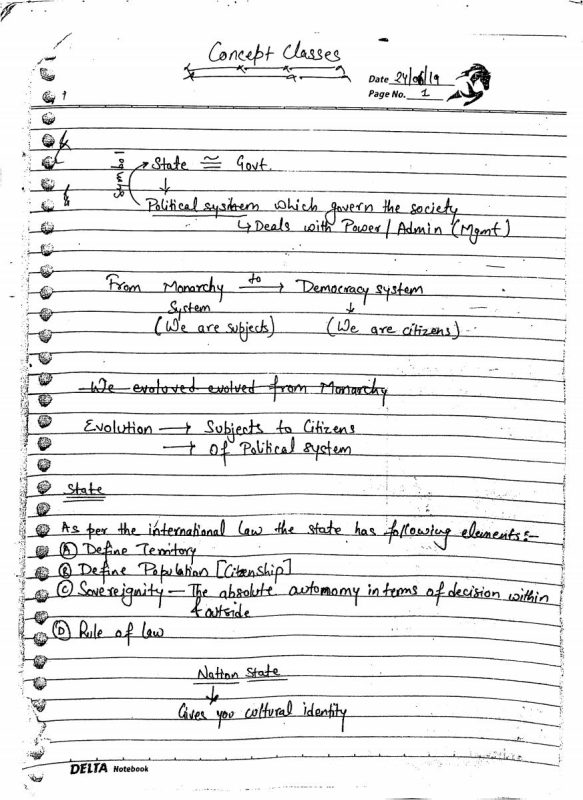 Concept Classes
Date 24/06/19
Page No. 1
State ≅ Govt.
↓
Political system which govern the society
↳ Deals with Power / Admin (Mgmt)
From Monarchy to → Democracy system
System ↓
(We are subjects) (We are citizens)
We evoloved evolved from Monarchy
Evolution → Subjects to Citizens
→ Of Political system
State
As per the international law the state has following elements:-
(A) Define Territory
(B) Define Population [Citizenship]
(C) Sovereignity — The absolute automomy in terms of decision within
& outside
(D) Rule of law
Nation State
↓
Gives you cultural identity
DELTA Notebook